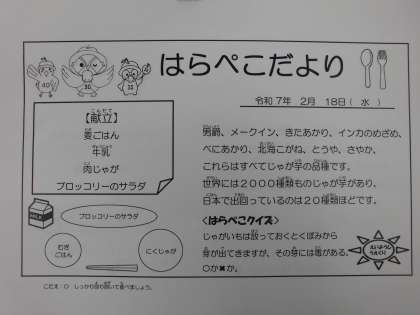 はらぺこだより
令和7年 2月 18日( 水 )
【献立】
麦ごはん
牛乳
肉じゃが
ブロッコリーのサラダ
男爵、メークイン、きたあかり、インカのめざめ、
べにあかり、北海こがね、とうや、さやか、
これらはすべてじゃが芋の品種です。
世界には2000種類ものじゃが芋があり、
日本で出回っているのは20種類ほどです。
<はらぺこクイズ>
じゃがいもは放っておくとくぼみから
芽が出てきますが、その芽には毒がある。
○か✖か。
MILK
ブロッコリーのサラダ
むぎ
ごはん
にくじゃが
こたえ ○ しっかり取り除いて食べましょう。